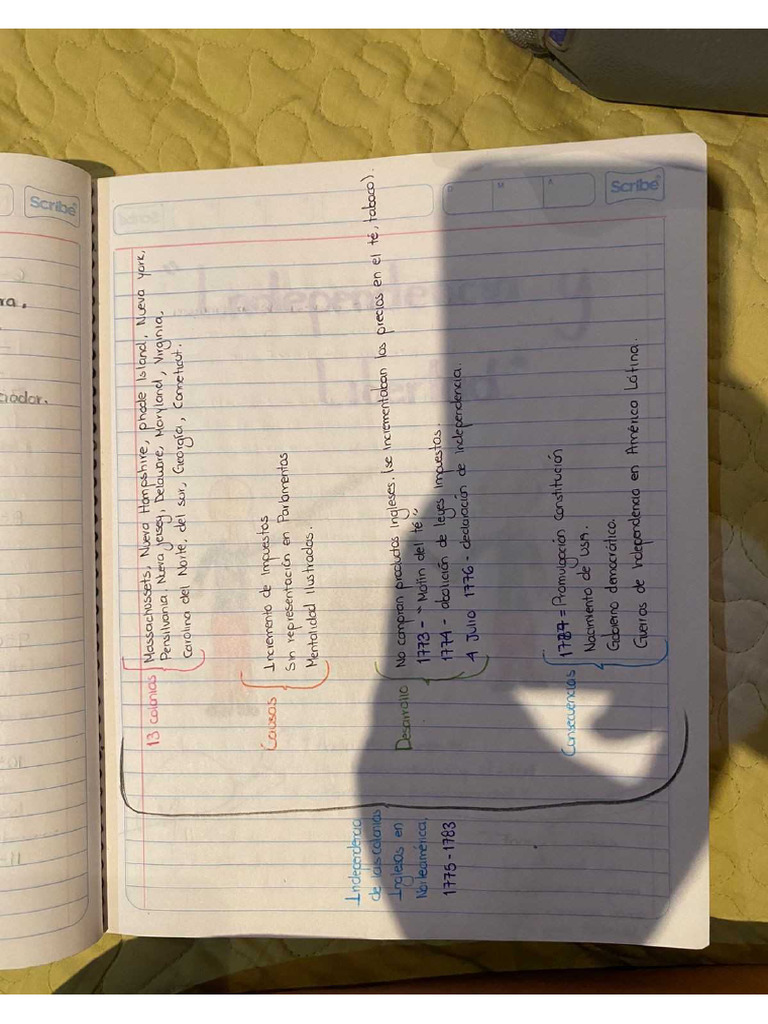 Scribe
Scribe
ra,
ciador.
Independencia
de las colonias
Inglesas en
Norteamérica.
1775-1783
13 Colonias
Massachussets, Nueva Hampshire, phode Island, Nueva York,
Pensilvania. Nueva Jersey, Delaware, Maryland, Virginia,
Carolina del Norte, del sur, Georgía, Conneticut.
Causas
Incremento de Impuestos
Sin representación en Parlamentos
Mentalidad Ilustradas.
Desarrollo
No compran productos Ingleses. (se Incrementaban los precios en el té, tabaco).
1773 - "Motín del té"
1774 - abolición de leyes impuestas.
4 Julio 1776 - declaración de independencia.
Consecuencias
1787 = Promulgación constitución
Nacimiento de USA.
Gobierno democrático.
Guerras de Independencia en América Látina.
"Independencia y
Libertad"